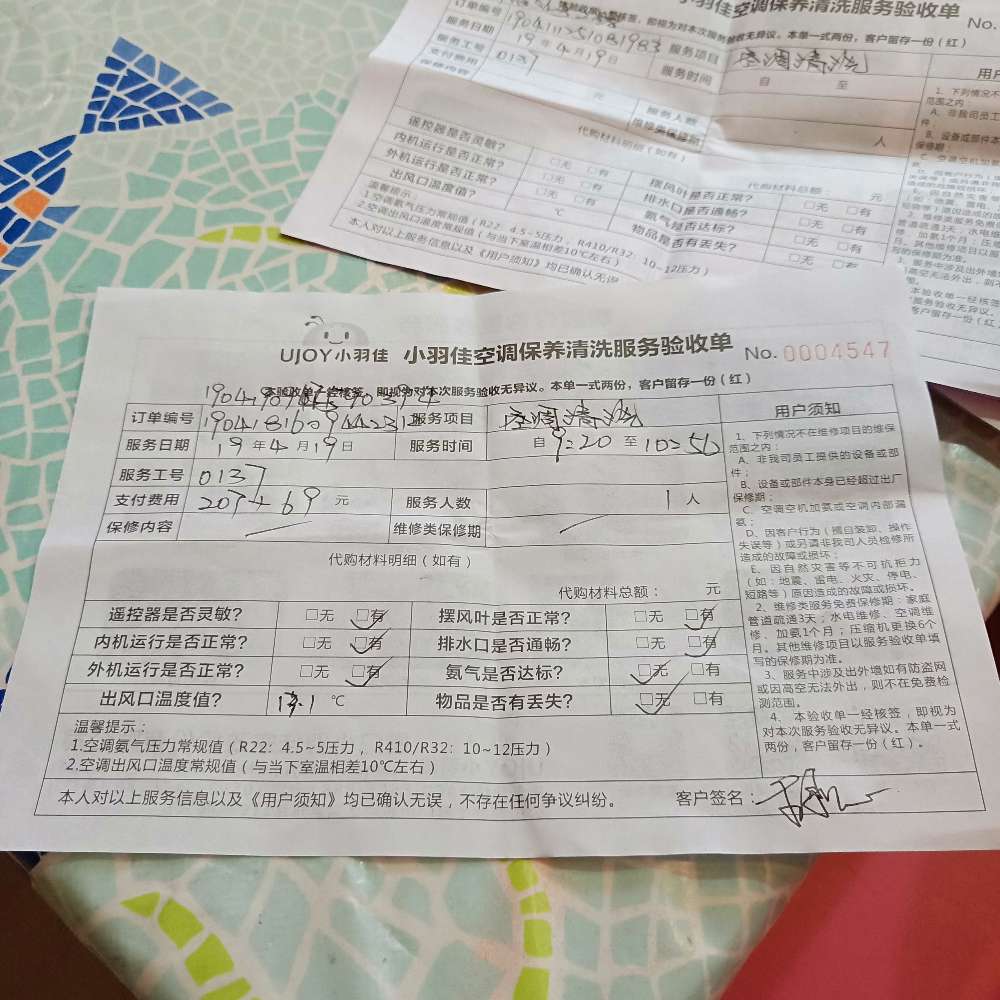 小羽佳空调保养清洗服务验收单 No.
核签，即视为对本次服务验收无异议。本单一式两份，客户留存一份（红）
订单编号 190411251081983 服务项目 空调清洗
服务日期 19年4月19日 服务时间 自 至
服务工号 0137
支付费用 元 服务人数 人
保修内容 维修类保修期
代购材料明细（如有）
代购材料总额 元
遥控器是否灵敏? □无 □有 摆风叶是否正常? □无 □有
内机运行是否正常? □无 □有 排水口是否通畅? □无 □有
外机运行是否正常? □无 □有 氨气是否达标? □无 □有
出风口温度值? ℃ 物品是否有丢失? □无 □有
温馨提示
1.空调氨气压力常规值（R22: 4.5~5压力，R410/R32: 10~12压力）
2.空调出风口温度常规值（与当下室温相差10℃左右）
本人对以上服务信息以及《用户须知》均已确认无误
UJOY小羽佳 小羽佳空调保养清洗服务验收单 No.0004547
本验收单一经核签，即视为对本次服务验收无异议。本单一式两份，客户留存一份（红）
订单编号 服务项目 空调清洗
服务日期 19年4月19日 服务时间 自9:20至10:50
服务工号 0137
支付费用 207+69 元 服务人数 1人
保修内容 维修类保修期
代购材料明细（如有）
代购材料总额： 元
遥控器是否灵敏? □无 □有 摆风叶是否正常? □无 □有
内机运行是否正常? □无 □有 排水口是否通畅? □无 □有
外机运行是否正常? □无 □有 氨气是否达标? □无 □有
出风口温度值? 13.1 ℃ 物品是否有丢失? □无 □有
温馨提示：
1.空调氨气压力常规值（R22: 4.5~5压力，R410/R32: 10~12压力）
2.空调出风口温度常规值（与当下室温相差10℃左右）
本人对以上服务信息以及《用户须知》均已确认无误，不存在任何争议纠纷。 客户签名：
用户须知
1、下列情况不在维修项目的维保
范围之内：
A、非我司员工提供的设备或部
件；
B、设备或部件本身已经超过出厂
保修期；
C、空调空机加氨或空调内部漏
氨；
D、因客户行为（擅自装卸、操作
失误等）或另请非我司人员检修所
造成的故障或损坏；
E、因自然灾害等不可抗拒力
（如：地震、雷电、火灾、停电、
短路等）原因造成的故障或损坏。
2、维修类服务免费保修期：家庭
管道疏通3天；水电维修、空调维
修、加氨1个月；压缩机更换6个
月。其他维修项目以服务验收单填
写的保修期为准。
3、服务中涉及出外墙如有防盗网
或因高空无法外出，则不在免费检
测范围。
4、本验收单一经核签，即视为
对本次服务验收无异议。本单一式
两份，客户留存一份（红）。